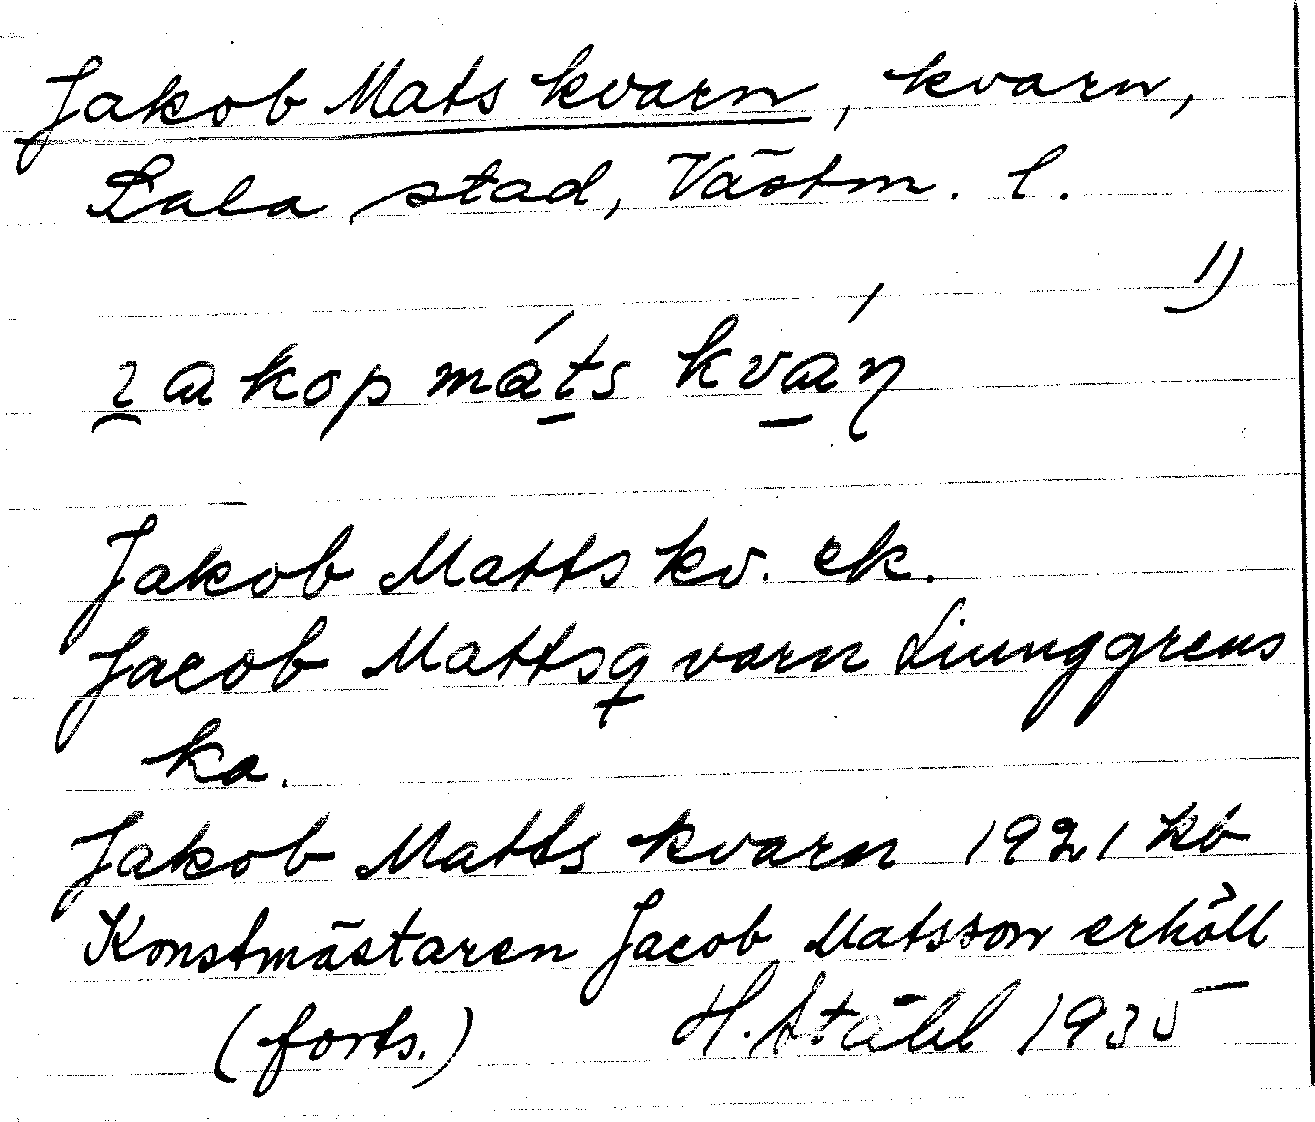 Jakob Mats kvarn, kvarn,
Sala stad, Västm. l.
1)
ɩ̯akop máts kván̩
Jakob Matts kv. ek.
Jacob Mattsqvarn Liunggrens
ka.
Jakob Matts kvarn 1921 kb
Konstmästaren Jacob Matsson erhöll
(forts.) H. Ståhl 1935